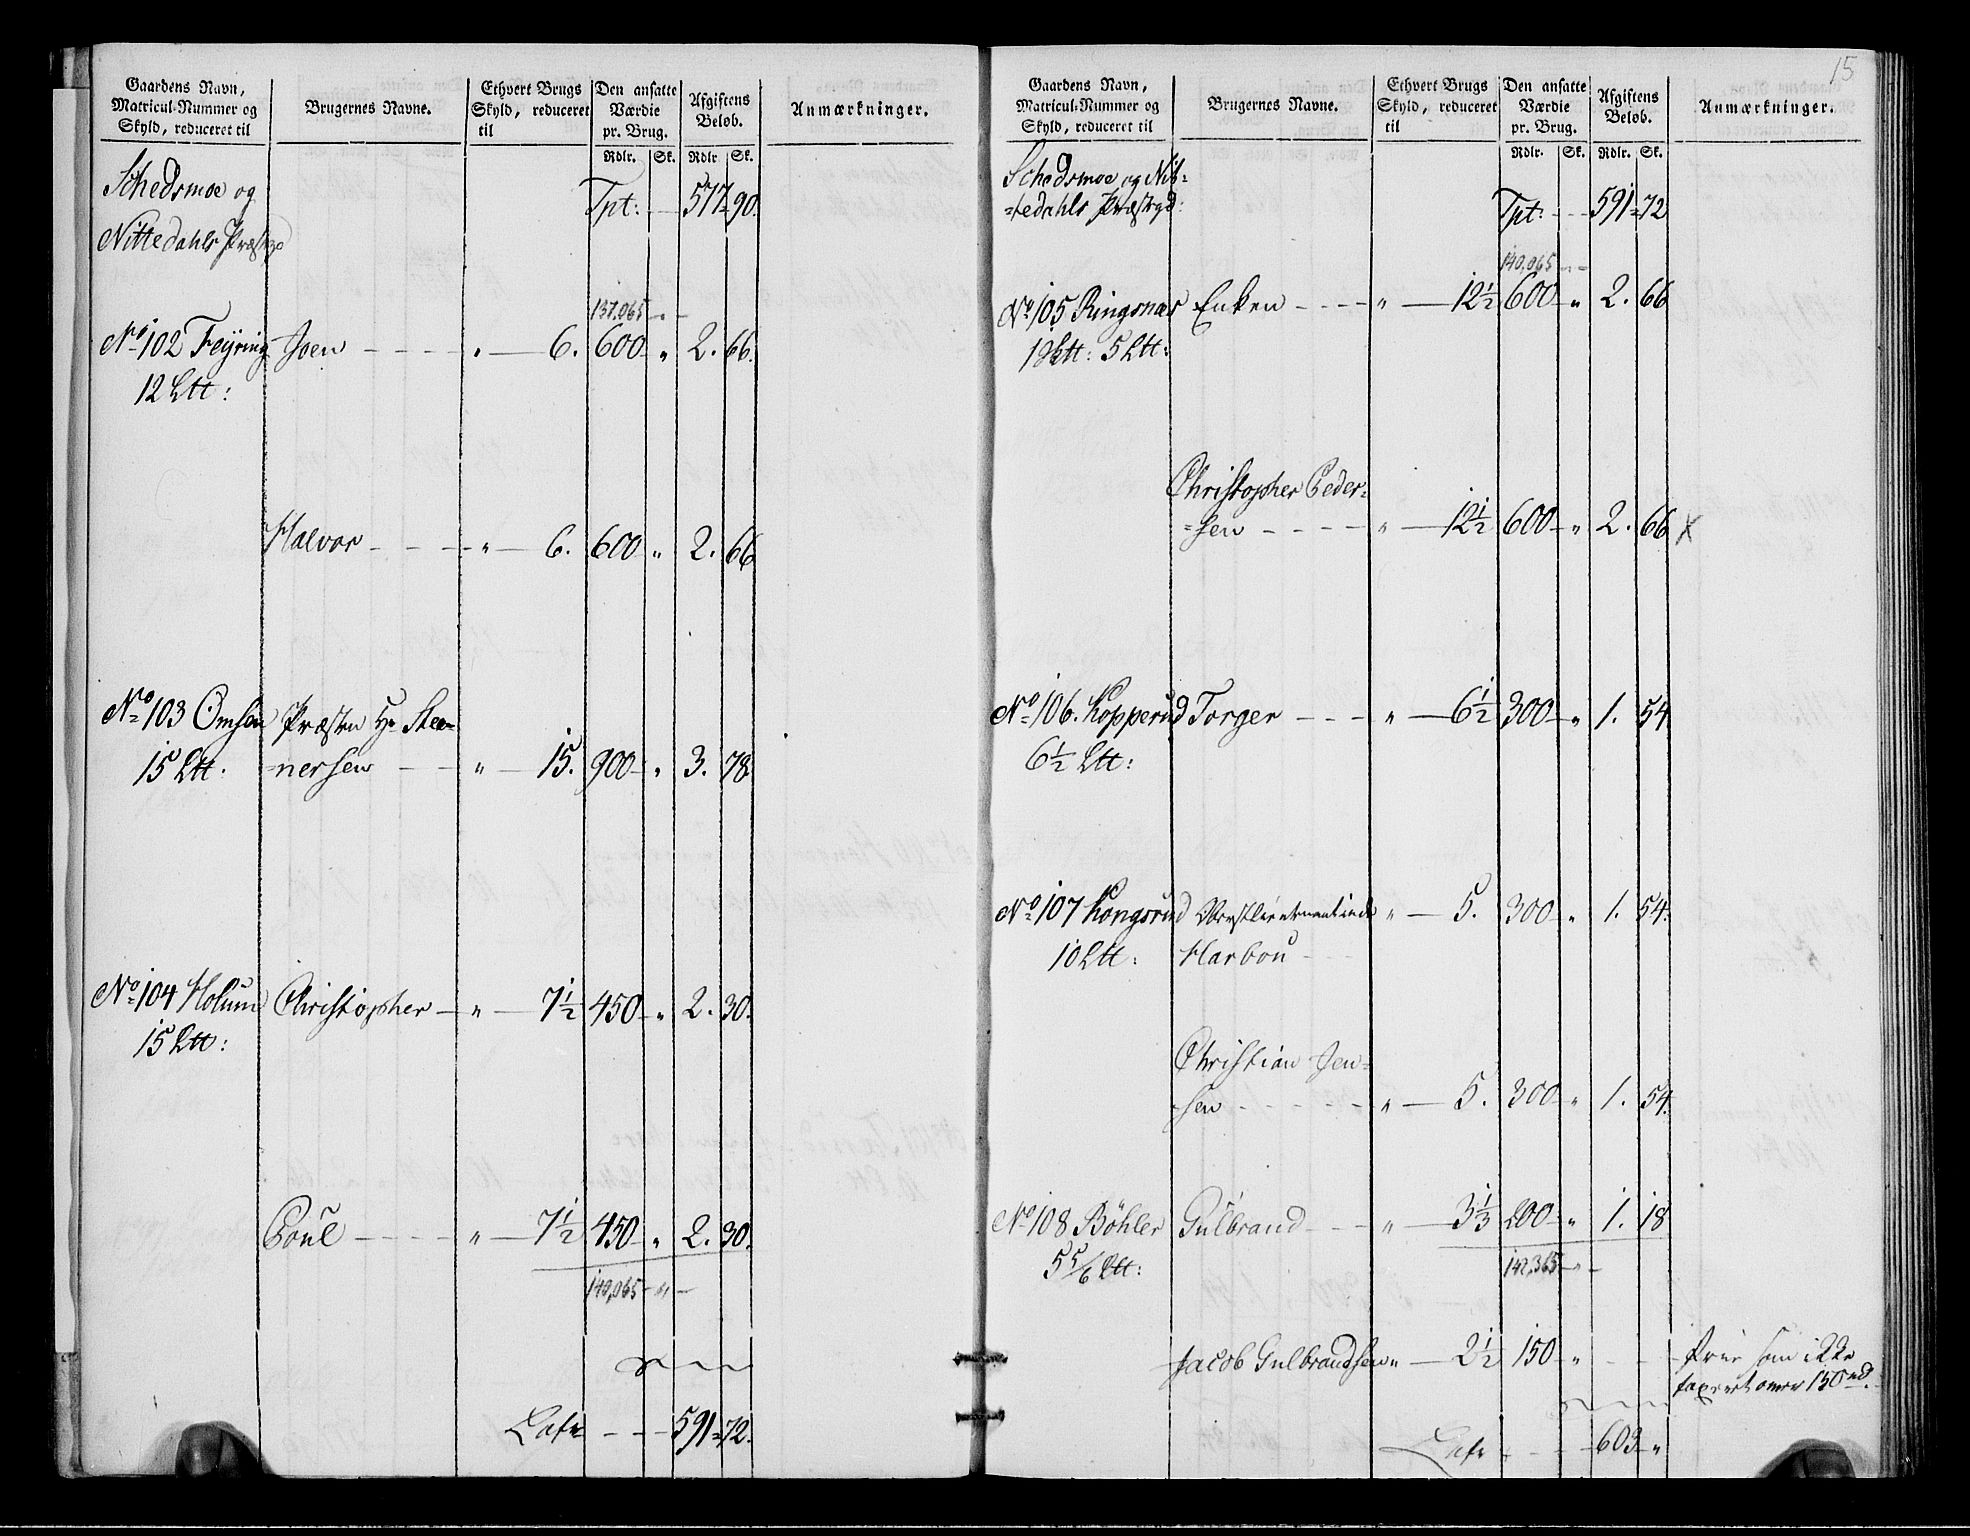 Gaardens Navn, Matricul-Nummer og Skyld, reduceret til | Brugernes Navne. | Ethvert Brugs Skyld, reduceret til | Den ansatte Værdie pr. Brug. | Afgiftens Beløb. | Anmærkninger.
Rdlr. | Sk. | Rdlr | Sk.
Schedsmoe og Tpt: 577 90.
Nittedahls Præstgd
137,065
No 102 Feyring Joen " 6. 600 " 2. 66.
12 Ltt:
Halvor " 6. 600 " 2. 66
No 103 Omsen Præsten Hr Stee-
15 Ltt. =nersen " 15. 900 " 3. 78
No 104 Holum Christopher " 7½ 450 " 2. 30.
15 Ltt:
Poul " 7½ 450 " 2. 30.
140,065 "
Lats 591 72.
15
Gaardens Navn, Matricul-Nummer og Skyld, reduceret til | Brugernes Navne. | Ethvert Brugs Skyld, reduceret til | Den ansatte Værdie pr. Brug. | Afgiftens Beløb. | Anmærkninger.
Rdlr. | Sk. | Rdlr. | Sk.
Schedsmoe og Nit=
=tedahls Præstgd: Tpt: 591 72
140,065
No 105 Ringsnær Enken " 12½ 600 " 2. 66
1 Sktt: 5 Ltt:
Christopher Peder=
=sen " 12½ 600 " 2. 66 x
No 106. Kopperud Torger " 6½ 300 " 1. 54
6½ Ltt:
No 107 Kongsrud Obrstlieutenantinde " 5. 300 " 1. 54.
10 Ltt: Harbou
Christian Jen=
=sen " 5. 300 " 1. 54.
No 108 Bøhler Gulbrand " 3⅓ 200 " 1. 18
5 5/6 Ltt: 142,365 "
Jacob Gulbrandsen " 2½ 150 " friie som ikke
taxeret over 150 rd.
Lats 603 "